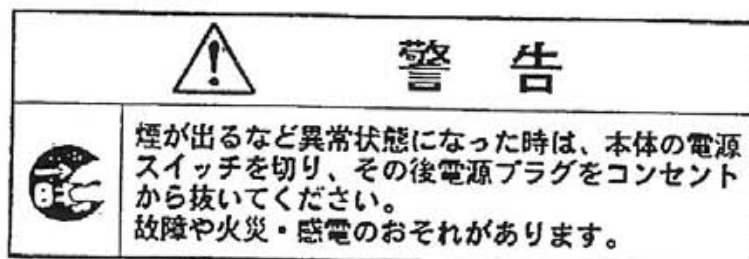 警告
煙が出るなど異常状態になった時は、本体の電源
スイッチを切り、その後電源プラグをコンセント
から抜いてください。
故障や火災・感電のおそれがあります。